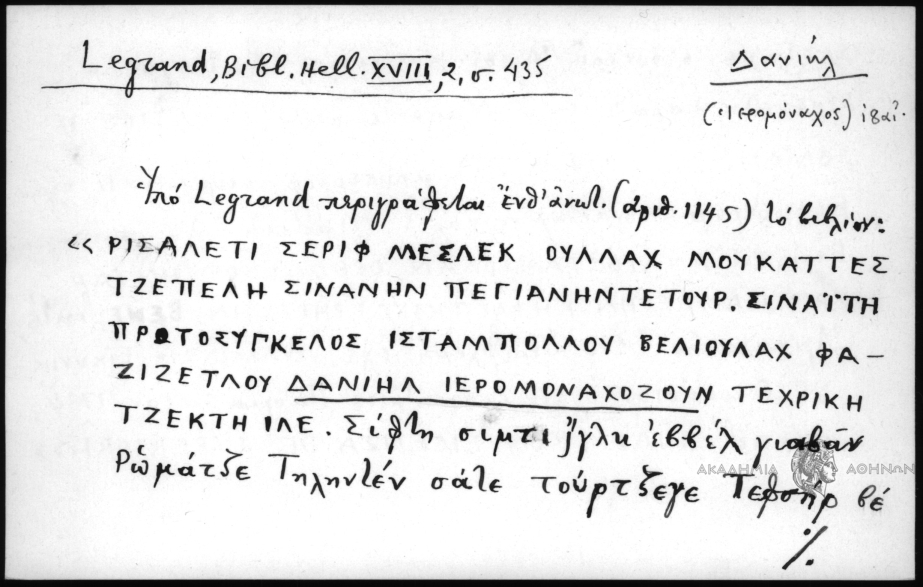 Legrand, Bibl. Hell. XVIII, 2, σ. 435
Δανιήλ
(Ἱερομόναχος)
Ὑπό Legrand περιγράφεται ἔνθ' ἀνωτ. (ἀριθ. 1145) τὸ βιβλίον:
« ΡΙΣΑΛΕΤΙ ΣΕΡΙΦ ΜΕΣΛΕΚ ΟΥΛΛΑΧ ΜΟΥΚΑΤΤΕΣ
ΤΖΕΠΕΛΗ ΣΙΝΑΝΗΝ ΠΕΓΙΑΝΗΝΤΕΤΟΥΡ. ΣΙΝΑΪΤΗ
ΠΡΩΤΟΣΥΓΚΕΛΟΣ ΙΣΤΑΜΠΟΛΛΟΥ ΒΕΛΙΟΥΛΑΧ ΦΑ-
ΖΙΖΕΤΛΟΥ ΔΑΝΙΗΛ ΙΕΡΟΜΟΝΑΧΟΖΟΥΝ ΤΕΧΡΙΚΗ
ΤΖΕΚΤΗ ΙΛΕ. Σίφτη σιμτι ἔββὲλ γιαβὰν
Ῥωμάτζε Τηλητέν σάτε τούρτζεγε Τεφσὴρ βέ
%
ΑΚΑΔΗΜΙΑ ΑΘΗΝΩΝ